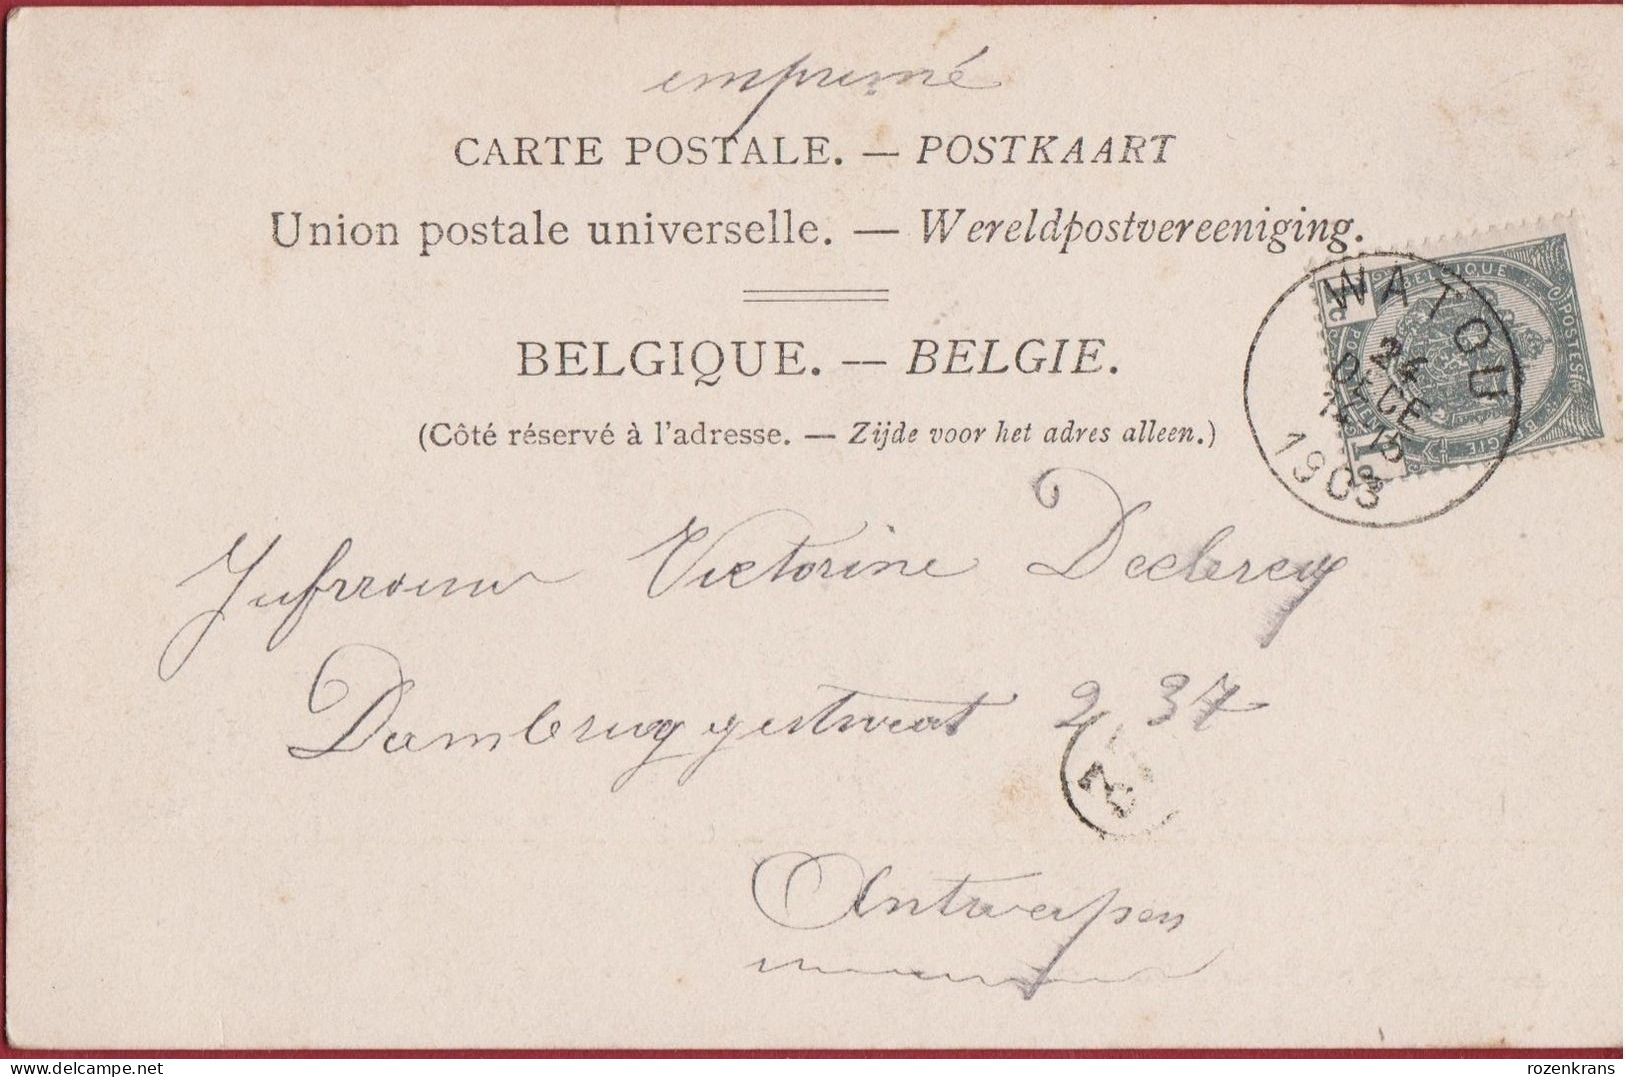 imprimé
CARTE POSTALE. — POSTKAART
Union postale universelle. — Wereldpostvereeniging.
BELGIQUE. — BELGIE.
(Côté réservé à l'adresse. — Zijde voor het adres alleen.)
BELGIQUE
POSTES
BELGIE
WATOU
24
DECE
1903
Jufvrouw Victorine Declercq
Dambruggestraat 237
Antwerpen
rozenkrans